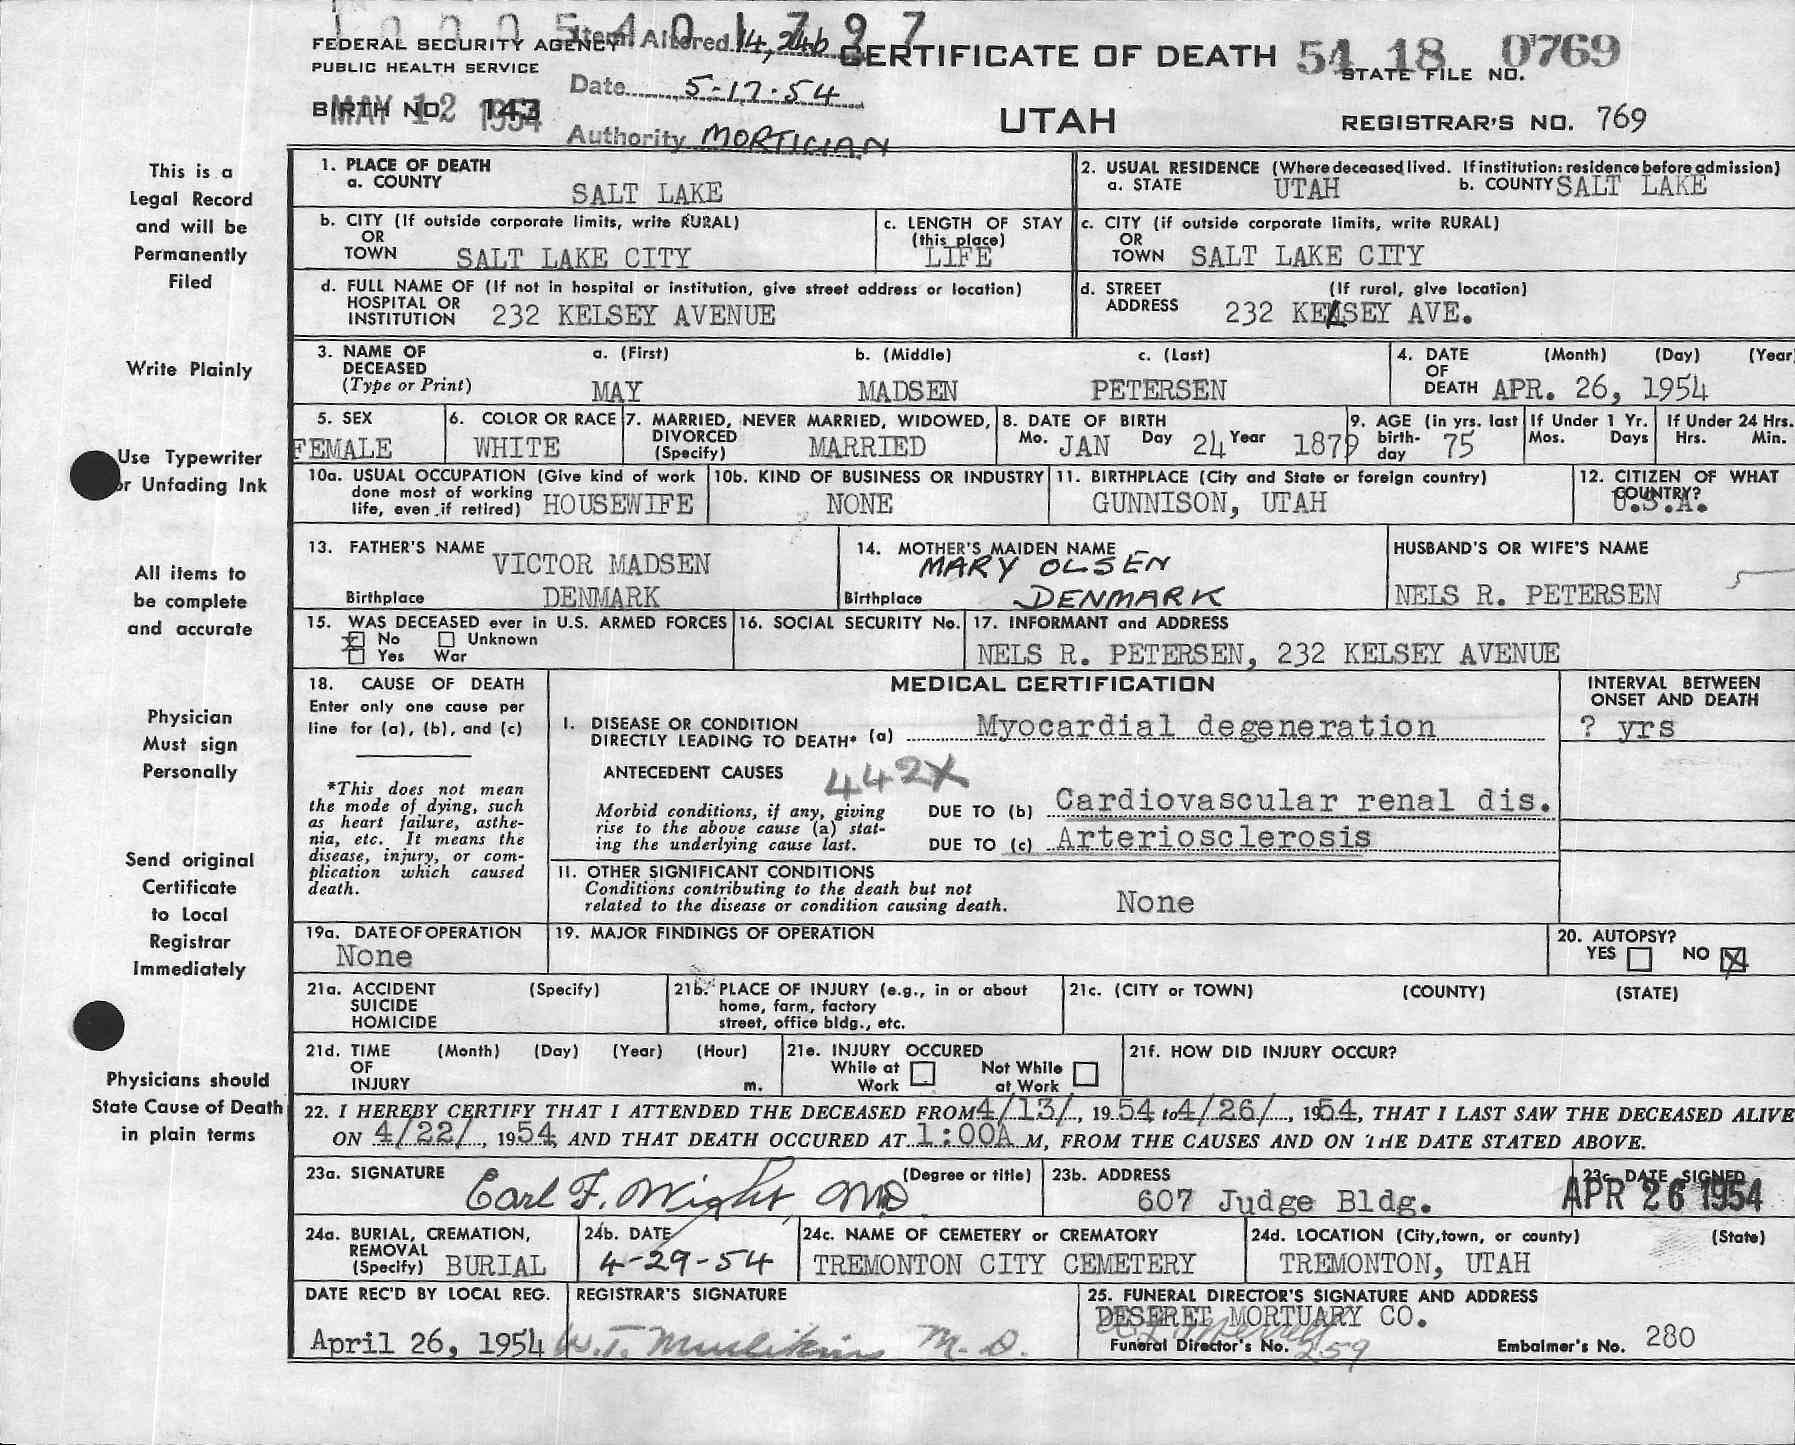 1 0 0 0 5 4 0 1 7 9 7
FEDERAL SECURITY AGENCY
PUBLIC HEALTH SERVICE
BIRTH NO. 143
MAY 12 1954
Item Altered 14, 24b
Date 5-17-54
Authority MORTICIAN
CERTIFICATE OF DEATH
UTAH
54 18 0769
STATE FILE NO.
REGISTRAR'S NO. 769
This is a
Legal Record
and will be
Permanently
Filed
Write Plainly
Use Typewriter
or Unfading Ink
All items to
be complete
and accurate
Physician
Must sign
Personally
Send original
Certificate
to Local
Registrar
Immediately
Physicians should
State Cause of Death
in plain terms
1. PLACE OF DEATH
a. COUNTY SALT LAKE
2. USUAL RESIDENCE (Where deceased lived. If institution: residence before admission)
a. STATE UTAH b. COUNTY SALT LAKE
b. CITY (If outside corporate limits, write RURAL)
OR
TOWN SALT LAKE CITY
c. LENGTH OF STAY
(this place)
LIFE
c. CITY (if outside corporate limits, write RURAL)
OR
TOWN SALT LAKE CITY
d. FULL NAME OF (If not in hospital or institution, give street address or location)
HOSPITAL OR
INSTITUTION 232 KELSEY AVENUE
d. STREET (If rural, give location)
ADDRESS 232 KELSEY AVE.
3. NAME OF a. (First) b. (Middle) c. (Last)
DECEASED
(Type or Print) MAY MADSEN PETERSEN
4. DATE (Month) (Day) (Year)
OF
DEATH APR. 26, 1954
5. SEX
FEMALE
6. COLOR OR RACE
WHITE
7. MARRIED, NEVER MARRIED, WIDOWED,
DIVORCED
(Specify) MARRIED
8. DATE OF BIRTH
Mo. JAN Day 24 Year 1879
9. AGE (in yrs. last
birth-
day 75
If Under 1 Yr.
Mos. Days
If Under 24 Hrs.
Hrs. Min.
10a. USUAL OCCUPATION (Give kind of work
done most of working
life, even if retired) HOUSEWIFE
10b. KIND OF BUSINESS OR INDUSTRY
NONE
11. BIRTHPLACE (City and State or foreign country)
GUNNISON, UTAH
12. CITIZEN OF WHAT
COUNTRY?
U.S.A.
13. FATHER'S NAME
VICTOR MADSEN
Birthplace DENMARK
14. MOTHER'S MAIDEN NAME
MARY OLSEN
Birthplace DENMARK
HUSBAND'S OR WIFE'S NAME
NELS R. PETERSEN
15. WAS DECEASED ever in U.S. ARMED FORCES
No Unknown
Yes War
16. SOCIAL SECURITY No.
17. INFORMANT and ADDRESS
NELS R. PETERSEN, 232 KELSEY AVENUE
18. CAUSE OF DEATH
Enter only one cause per
line for (a), (b), and (c)
*This does not mean
the mode of dying, such
as heart failure, asthe-
nia, etc. It means the
disease, injury, or com-
plication which caused
death.
MEDICAL CERTIFICATION
INTERVAL BETWEEN
ONSET AND DEATH
I. DISEASE OR CONDITION
DIRECTLY LEADING TO DEATH* (a) Myocardial degeneration ? yrs
ANTECEDENT CAUSES 442X
Morbid conditions, if any, giving
rise to the above cause (a) stat-
ing the underlying cause last.
DUE TO (b) Cardiovascular renal dis.
DUE TO (c) Arteriosclerosis
II. OTHER SIGNIFICANT CONDITIONS
Conditions contributing to the death but not
related to the disease or condition causing death. None
19a. DATE OF OPERATION
None
19. MAJOR FINDINGS OF OPERATION
20. AUTOPSY?
YES NO X
21a. ACCIDENT (Specify)
SUICIDE
HOMICIDE
21b. PLACE OF INJURY (e.g., in or about
home, farm, factory
street, office bldg., etc.
21c. (CITY or TOWN) (COUNTY) (STATE)
21d. TIME (Month) (Day) (Year) (Hour)
OF
INJURY m.
21e. INJURY OCCURED
While at Not While
Work at Work
21f. HOW DID INJURY OCCUR?
22. I HEREBY CERTIFY THAT I ATTENDED THE DECEASED FROM 4/13/, 1954 to 4/26/, 1954, THAT I LAST SAW THE DECEASED ALIVE
ON 4/22/, 1954, AND THAT DEATH OCCURED AT 1:00A M, FROM THE CAUSES AND ON THE DATE STATED ABOVE.
23a. SIGNATURE (Degree or title)
Earl F. Wight MD
23b. ADDRESS
607 Judge Bldg.
23c. DATE SIGNED
APR 26 1954
24a. BURIAL, CREMATION,
REMOVAL
(Specify) BURIAL
24b. DATE
4-29-54
24c. NAME OF CEMETERY or CREMATORY
TREMONTON CITY CEMETERY
24d. LOCATION (City, town, or county) (State)
TREMONTON, UTAH
DATE REC'D BY LOCAL REG.
April 26, 1954
REGISTRAR'S SIGNATURE
W.T. M. D.
25. FUNERAL DIRECTOR'S SIGNATURE AND ADDRESS
DESERET MORTUARY CO.
Funeral Director's No. 259
Embalmer's No. 280